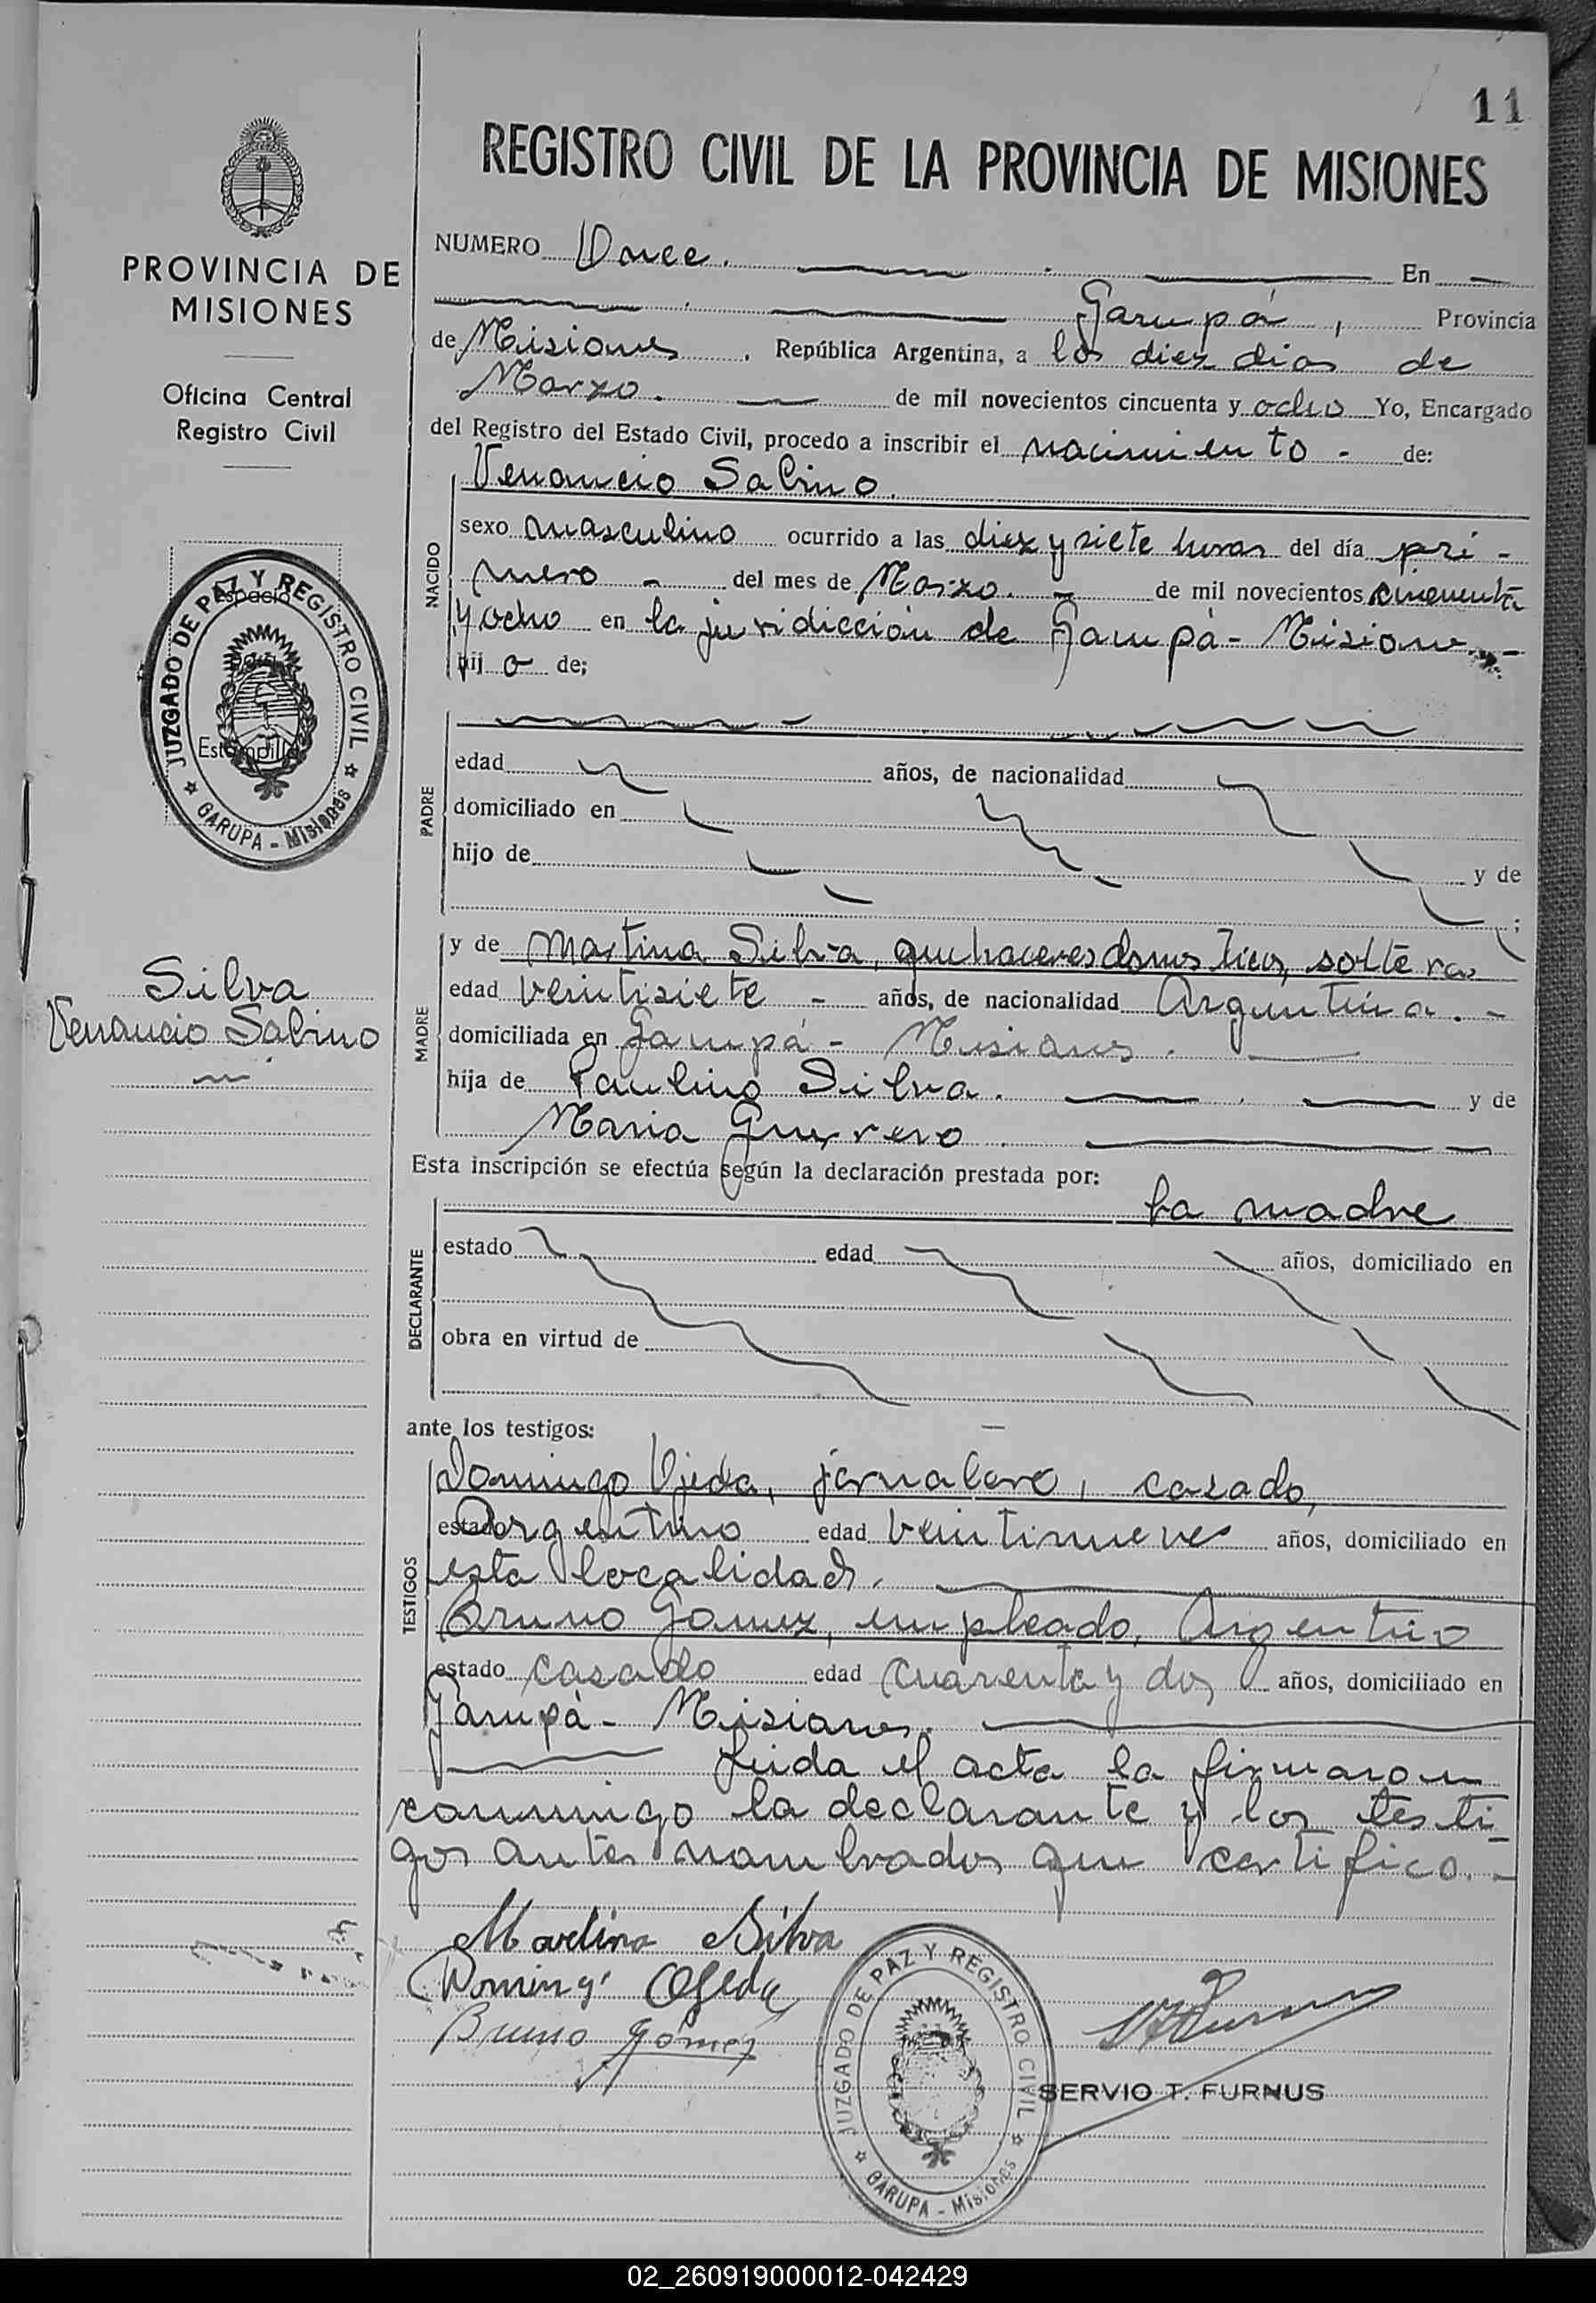 11
REGISTRO CIVIL DE LA PROVINCIA DE MISIONES
PROVINCIA DE
MISIONES
Oficina Central
Registro Civil
Espacio
para
Estampilla
JUZGADO DE PAZ Y REGISTRO CIVIL
GARUPA - Misiones
Silva
Venancio Sabino
NUMERO Once. En
Garupá, Provincia
de Misiones. República Argentina, a los diez dias de
Marzo. de mil novecientos cincuenta y ocho Yo, Encargado
del Registro del Estado Civil, procedo a inscribir el nacimiento - de:
NACIDO
Venancio Sabino.
sexo masculino ocurrido a las diez y siete horas del día pri-
mero - del mes de Marzo. - de mil novecientos cincuenta
y ocho en la juridicción de Garupá - Misiones. -
hijo de;
PADRE
edad años, de nacionalidad
domiciliado en
hijo de y de
;
MADRE
y de Martina Silva, quehaceres domesticos, soltera,
edad veintisiete - años, de nacionalidad Argentina. -
domiciliada en Garupá - Misiones.
hija de Paulino Silva. y de
Maria Guerrero.
Esta inscripción se efectúa según la declaración prestada por:
DECLARANTE
La madre
estado edad años, domiciliado en
obra en virtud de
ante los testigos:
TESTIGOS
Domingo Ojeda, jornalero, casado,
estado Argentino edad veintinueve años, domiciliado en
esta localidad.
Bruno Gomez, empleado, Argentino
estado casado edad cuarenta y dos años, domiciliado en
Garupá - Misiones.
Leida el acta la firmaron
conmigo la declarante y los testi-
gos antes nombrados que certifico. -
Martina Silva
Domingo Ojeda
Bruno Gómez
JUZGADO DE PAZ Y REGISTRO CIVIL
GARUPA - Misiones
SERVIO T. FURNUS
02_260919000012-042429